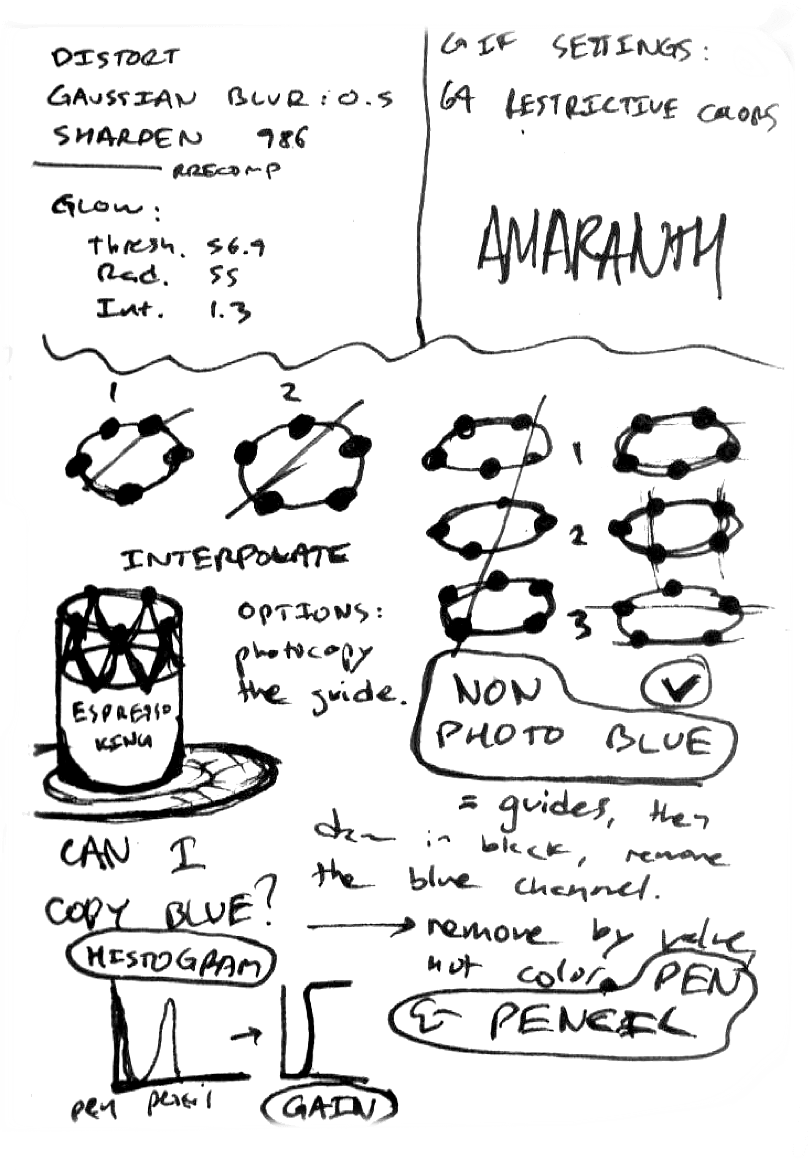 DISTORT
GAUSSIAN BLUR: 0.5
SHARPEN 986
PRECOMP
GLOW:
Thresh. 56.9
Rad. 55
Int. 1.3
GIF SETTINGS:
64 RESTRICTIVE COLORS
AMARANTH
1 2
INTERPOLATE
1
2
3
OPTIONS:
photocopy
the guide.
ESPRESSO
KING
NON
PHOTO BLUE
= guides, then
draw in black, remove
the blue channel.
CAN I
COPY BLUE?
remove by value,
not color.
HISTOGRAM
PEN
& PENCIL
pen pencil
GAIN